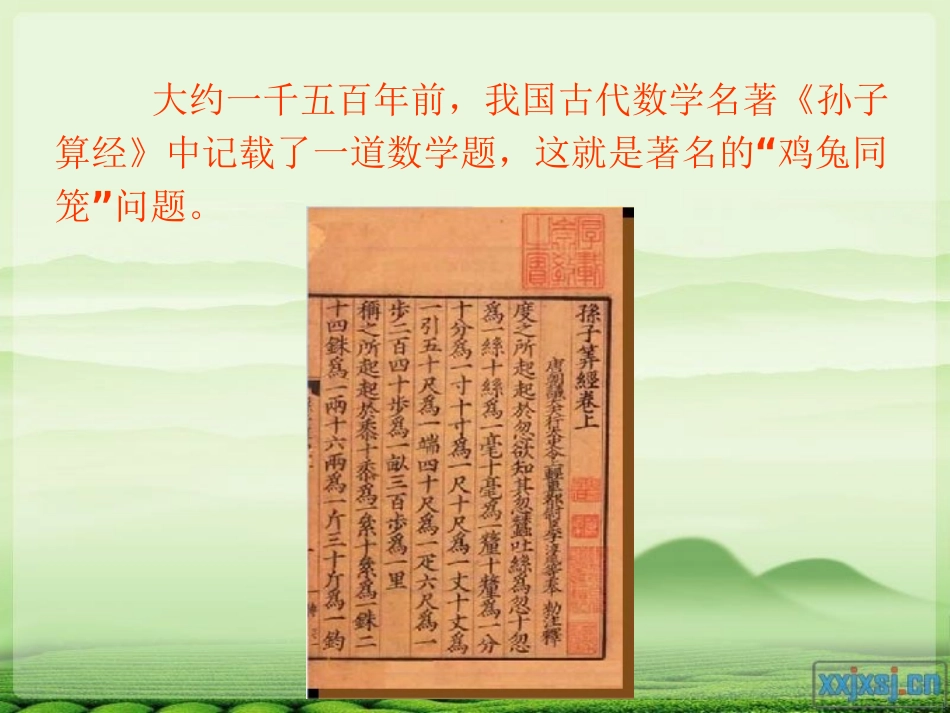 大约一千五百年前，我国古代数学名著《孙子
算经》中记载了一道数学题，这就是著名的“鸡兔同
笼”问题。
孫子筭經卷上
度之所起起於忽欲知其忽蠶吐絲為忽十忽
為一絲十絲為一毫十毫為一釐十釐為一分
十分為一寸十寸為一尺十尺為一丈十丈為
一引五十尺為一端四十尺為一疋六尺為一
步二百四十步為一畝三百步為一里
稱之所起起於黍十黍為一絫十絫為一銖二
十四銖為一兩十六兩為一斤三十斤為一鈞
xxjxsj.cn